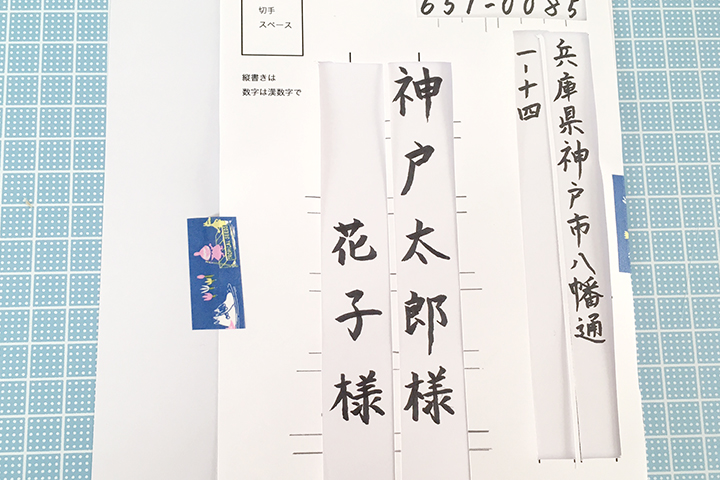 651-0085
兵庫県神戸市八幡通
一-十四
神戸太郎様
花子様
切手
スペース
縦書きは
数字は漢数字で